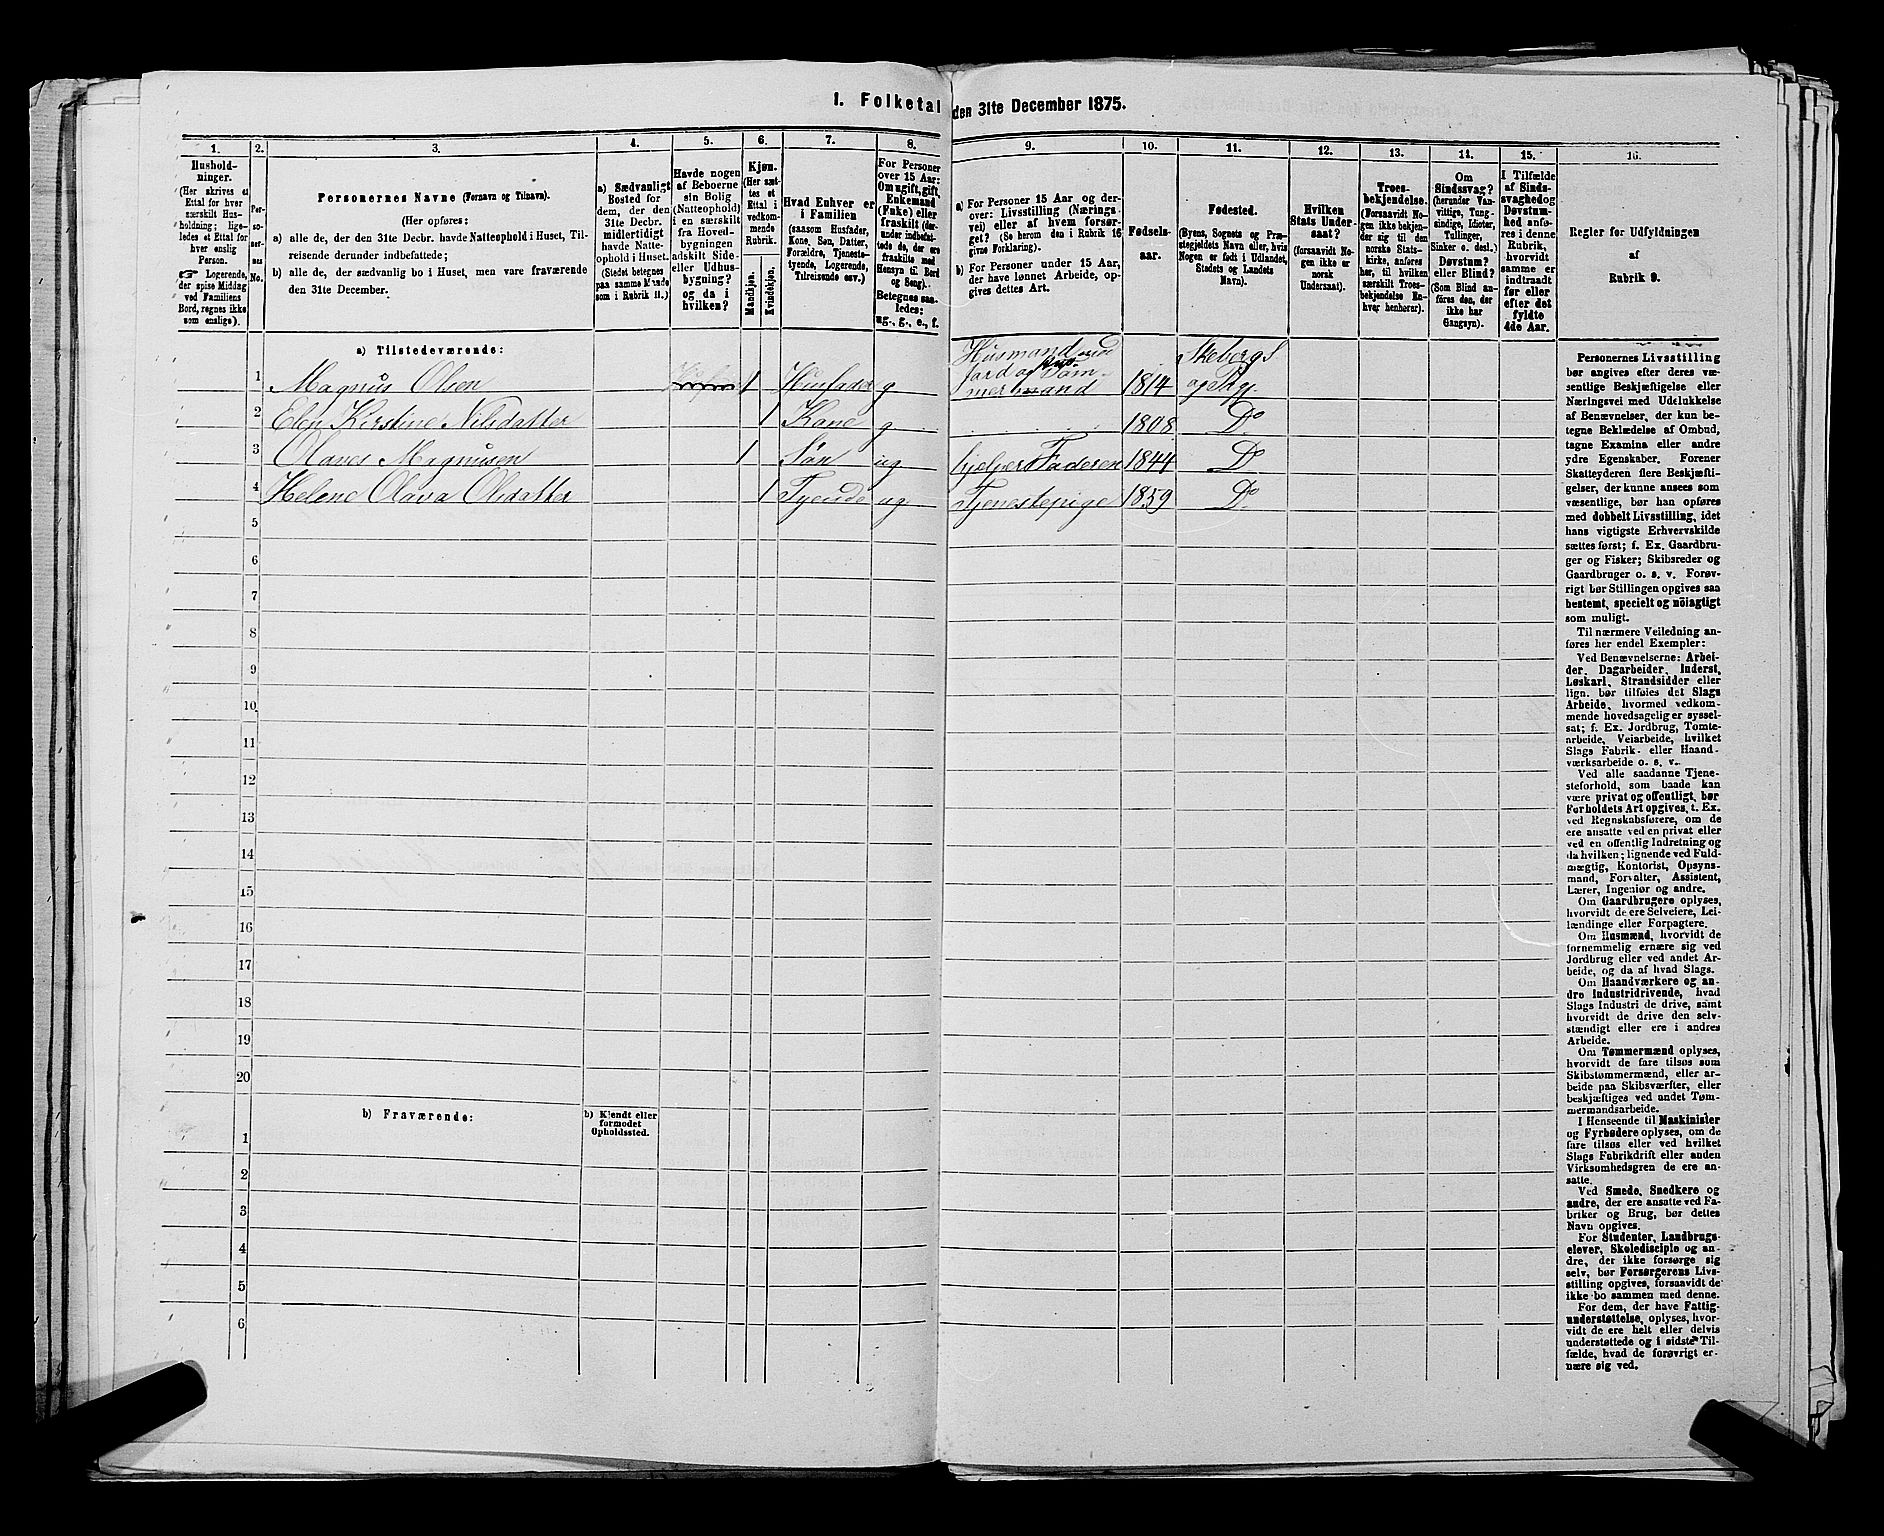 I. Folketal den 31te December 1875.
1.
2.
3.
4.
5.
6.
7.
8.
9.
10.
11.
12.
13.
14.
15.
16.
Hushold-
ninger.
(Her skrives et
Ettal for hver
særskilt Hus-
holdning; lige-
ledes et Ettal for
hver enslig
Person.
☞ Logerende,
der spise Middag
ved Familiens
Bord, regnes ikke
som enslige).
Per-
so-
ner-
nes
No.
Personernes Navne (Fornavn og Tilnavn).
(Her opføres:
a) alle de, der den 31te Decbr. havde Natteophold i Huset, Til-
reisende derunder indbefattede;
b) alle de, der sædvanlig bo i Huset, men vare fraværende
den 31te December.
a) Sædvanligt
Bosted for
dem, der den
31te Decbr.
midlertidigt
havde Natte-
ophold i Huset.
(Stedet betegnes
paa samme Maade
som i Rubrik 11.)
Havde nogen
af Beboerne
sin Bolig
(Natteophold)
i en særskilt
fra Hoved-
bygningen
adskilt Side-
eller Udhus-
bygning?
og da i
hvilken?
Kjøn.
(Her sæt-
tes et
Ettal i
vedkom-
mende
Rubrik.
Mandkjøn.
Kvindekjøn.
Hvad Enhver er
i Familien
(saasom Husfader,
Kone, Søn, Datter,
Forældre, Tjeneste-
tyende, Logerende,
Tilreisende osv.)
For Personer
over 15 Aar:
Om ugift, gift,
Enkemand
(Enke) eller
fraskilt (der-
under indbefat-
tede de, der ere
fraskilte med
Hensyn til Bord
og Seng).
Betegnes saa-
ledes:
ug., g., e., f.
a) For Personer 15 Aar og der-
over: Livsstilling (Nærings-
vei) eller af hvem forsør-
get? (Se herom den i Rubrik 16
givne Forklaring).
b) For Personer under 15 Aar,
der have lønnet Arbeide, op-
gives dettes Art.
Fødsels-
aar.
Fødested.
(Byens, Sognets og Præ-
stegjeldets Navn eller, hvis
Nogen er født i Udlandet,
Stedets og Landets
Navn).
Hvilken
Stats Under-
saat?
(forsaavidt No-
gen ikke er
norsk
Undersaat).
Troes-
bekjendelse.
(Forsaavidt No-
gen ikke bekjen-
der sig til den
norske Stats-
kirke, anføres
her, til hvilken
særskilt Troes-
bekjendelse En-
hver henhører).
Om
Sindssvag?
(herunder Van-
vittige, Tung-
sindige, Idioter,
Tullinger,
Sinker o. desl.)
Døvstum?
eller Blind?
(Som Blind an-
føres den, der
ikke har
Gangsyn).
I Tilfælde
af Sinds-
svaghed og
Døvstum-
hed anfø-
res i denne
Rubrik,
hvorvidt
samme er
indtraadt
før eller
efter det
fyldte
4de Aar.
Regler for Udfyldningen
af
Rubrik 9.
a) Tilstedeværende:
1 Magnus Olsen 1 Husfader g Husmand med Jord og Tømmermand 1814 Skebergs og Prgj.
2 Elen Kirstine Nilsdatter 1 Kone g 1808 Do.
3 Olaves Magnusen 1 Søn ug hjelper Faderen 1844 Do
4 Helene Olava Olsdatter 1 Tyende ug Tjenestepige 1859 Do.
5
6
7
8
9
10
11
12
13
14
15
16
17
18
19
20
b) Fraværende:
b) Kjendt eller
formodet
Opholdssted.
1
2
3
4
5
6
Personernes Livsstilling
bør angives efter deres væ-
sentlige Beskjæftigelse eller
Næringsvei med Udelukkelse
af Benævnelser, der kun be-
tegne Beklædelse af Ombud,
tagne Examina eller andre
ydre Egenskaber. Forener
Skatteyderen flere Beskjæfti-
gelser, der kunne ansees som
væsentlige, bør han opføres
med dobbelt Livsstilling, idet
hans vigtigste Erhvervskilde
sættes først; f. Ex. Gaardbru-
ger og Fisker; Skibsreder og
Gaardbruger o. s. v. Forøv-
rigt bør Stillingen opgives saa
bestemt, specielt og nöiagtigt
som muligt.
Til nærmere Veiledning an-
føres her endel Exempler:
Ved Benævnelserne: Arbei-
der, Dagarbeider, Inderst,
Løskarl, Strandsidder eller
lign. bør tilføies det Slags
Arbeide, hvormed vedkom-
mende hovedsagelig er syssel-
sat; f. Ex. Jordbrug, Tomte-
arbeide, Veiarbeide, hvilket
Slags Fabrik- eller Haand-
værksarbeide o. s. v.
Ved alle saadanne Tjene-
steforhold, som baade kan
være privat og offentligt, bør
Forholdets Art opgives, t. Ex.
ved Regnskabsførere, om de
ere ansatte ved en privat eller
ved en offentlig Indretning og
da hvilken; lignende ved Fuld-
mægtig, Kontorist, Opsyns-
mand, Forvalter, Assistent,
Lærer, Ingeniør og andre.
Om Gaardbrugere oplyses,
hvorvidt de ere Selveiere, Lei-
lændinge eller Forpagtere.
Om Husmænd, hvorvidt de
fornemmelig ernære sig ved
Jordbrug eller ved andet Ar-
beide, og da af hvad Slags.
Om Haandværkere og an-
dre Industridrivende, hvad
Slags Industri de drive, samt
hvorvidt de drive den selv-
stændigt eller ere i andres
Arbeide.
Om Tømmermænd oplyses,
hvorvidt de fare tilsøs som
Skibstømmermænd, eller ar-
beide paa Skibsværfter, eller
beskjæftiges ved andet Tøm-
mermandsarbeide.
I Henseende til Maskinister
og Fyrbødere oplyses, om de
fare tilsøs eller ved hvilket
Slags Fabrikdrift eller anden
Virksomhedsgren de ere an-
satte.
Ved Smede, Snedkere og
andre, der ere ansatte ved Fa-
briker og Brug, bør dettes
Navn opgives.
For Studenter, Landbrugs-
elever, Skoledisciple og an-
dre, der ikke forsørge sig
selv, bør Forsørgerens Livs-
stilling opgives, forsaavidt de
ikke bo sammen med denne.
For dem, der have Fattig-
understøttelse, oplyses, hvor-
vidt de ere helt eller delvis
understøttede og i sidste Til-
fælde, hvad de forøvrigt er-
nære sig ved.